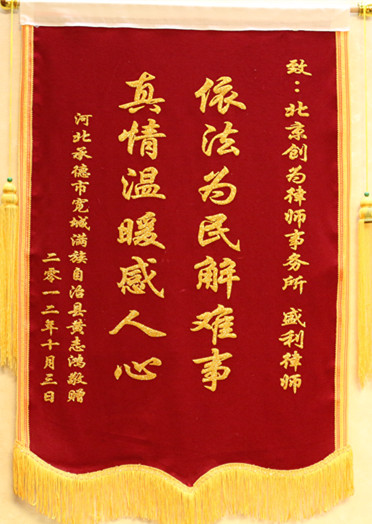 致：北京创为律师事务所 盛利律师
依法为民解难事
真情温暖感人心
河北承德市宽城满族自治县黄志鸿敬赠
二零一二年十月三日